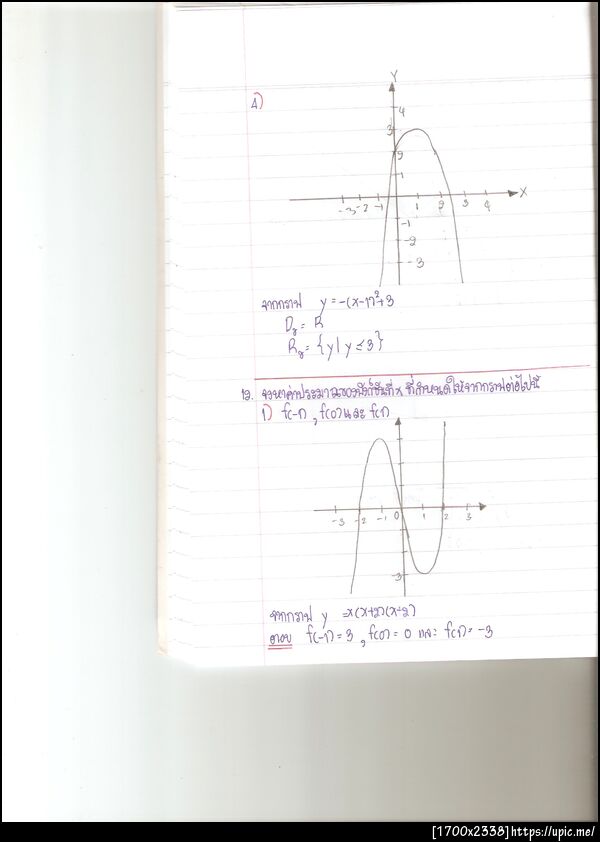 4)
Y
4
3
2
1
-3 -2 -1 1 2 3 4 X
-1
-2
-3
จากกราฟ y = -(x-1)²+3
Dᵧ = R
Rᵧ = {y | y ≤ 3}
12. จงหาค่าประมาณของฟังก์ชันที่ x ที่กำหนดให้จากกราฟต่อไปนี้
1) f(-1) , f(0) และ f(1)
-3 -2 -1 0 1 2 3
-3
จากกราฟ y = x(x+2)(x-2)
ตอบ f(-1) = 3 , f(0) = 0 และ f(1) = -3
[1700x2338]https://upic.me/